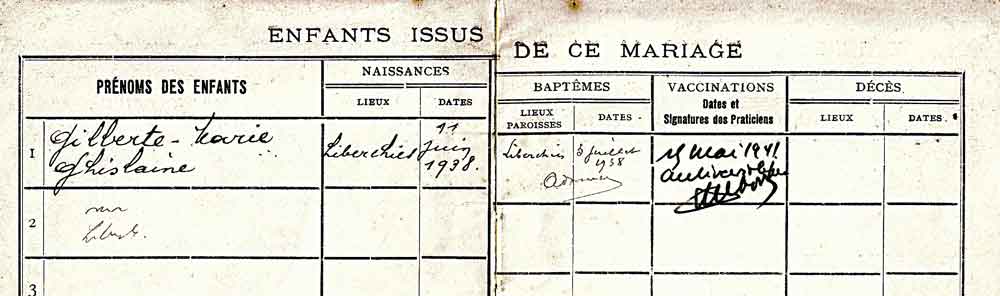 ENFANTS ISSUS DE CE MARIAGE
PRÉNOMS DES ENFANTS
NAISSANCES
LIEUX
DATES
BAPTÊMES
LIEUX
PAROISSES
DATES
VACCINATIONS
Dates et
Signatures des Praticiens
DÉCÈS
LIEUX
DATES
1
Gilberte - Marie
Ghislaine
Liberchies
11
juin
1938.
Liberchies
3 juillet
1938
15 mai 1941
2
3